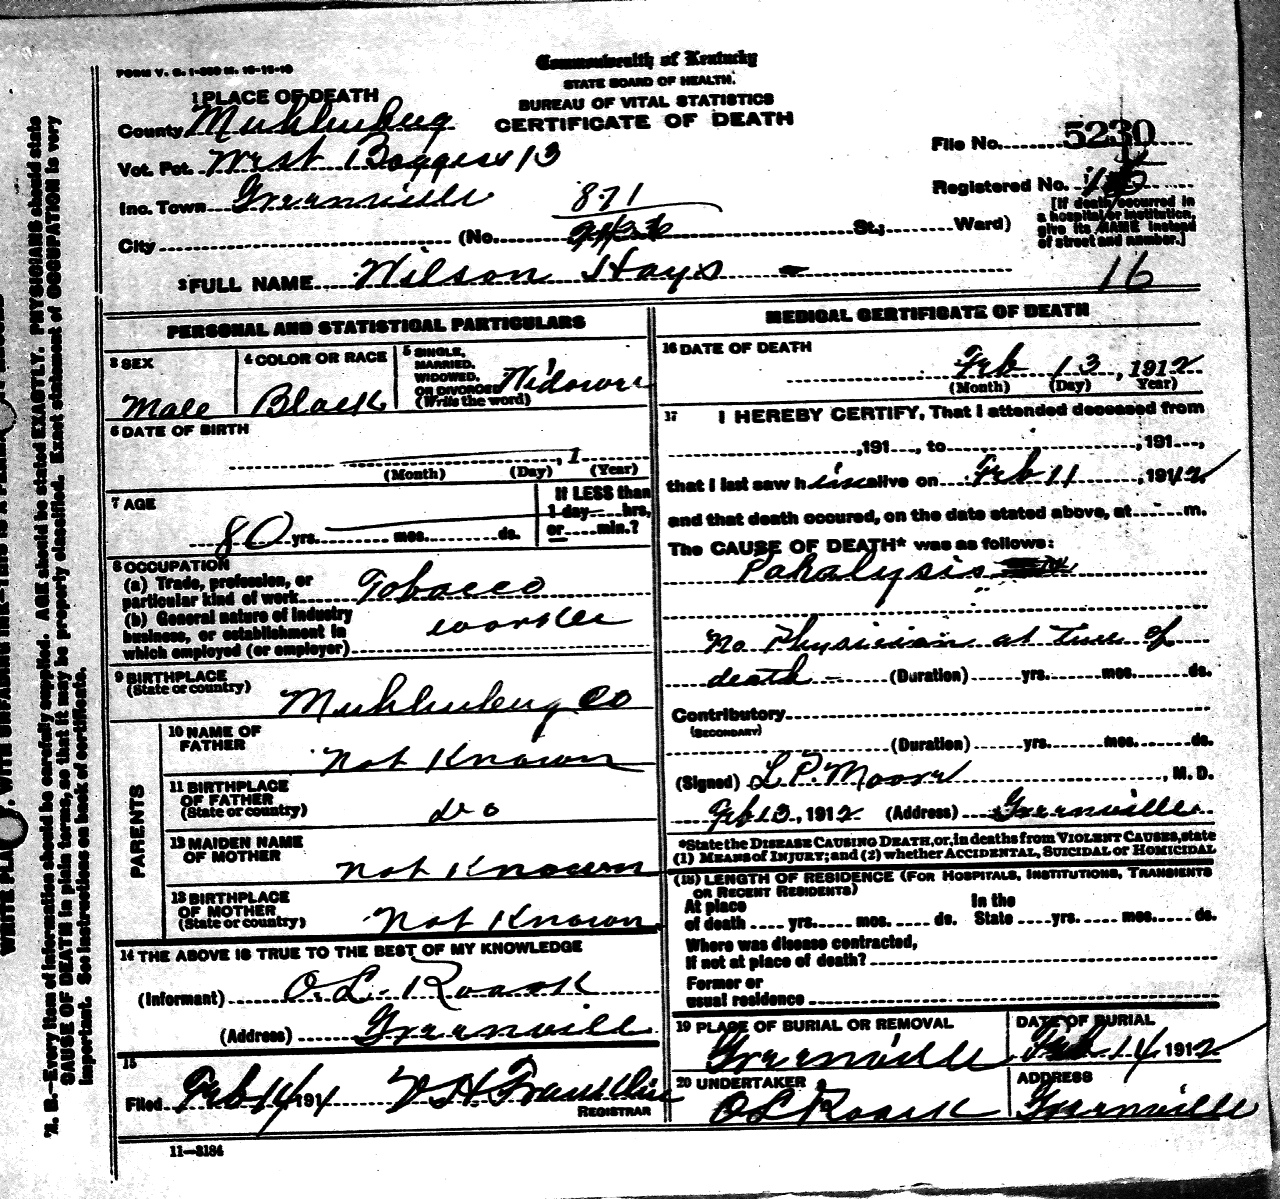 FORM V. S. 1-350 M. 10-15-10
Commonwealth of Kentucky
STATE BOARD OF HEALTH.
BUREAU OF VITAL STATISTICS
CERTIFICATE OF DEATH
1 PLACE OF DEATH
County Muhlenberg
Vot. Pct. West Boggess 13
Inc. Town Greenville
871
City (No. St.; Ward)
File No. 5230
Registered No.
[If death occurred in
a hospital or institution,
give its NAME instead
of street and number.]
16
2 FULL NAME Wilson Hays
PERSONAL AND STATISTICAL PARTICULARS
3 SEX
Male
4 COLOR OR RACE
Black
5 SINGLE,
MARRIED,
WIDOWED,
OR DIVORCED
(Write the word)
Widower
6 DATE OF BIRTH
, 1
(Month) (Day) (Year)
7 AGE
80 yrs. mos. ds.
If LESS than
1 day hrs,
or min.?
8 OCCUPATION
(a) Trade, profession, or
particular kind of work Tobacco
(b) General nature of industry
business, or establishment in
which employed (or employer)
worker
9 BIRTHPLACE
(State or country)
Muhlenberg Co
PARENTS
10 NAME OF
FATHER
not Known
11 BIRTHPLACE
OF FATHER
(State or country)
do
12 MAIDEN NAME
OF MOTHER
not Known
13 BIRTHPLACE
OF MOTHER
(State or country)
Not Known
14 THE ABOVE IS TRUE TO THE BEST OF MY KNOWLEDGE
(Informant) O.L. Roark
(Address) Greenville
15
Filed Feb 14 191 V H Franklin
REGISTRAR
11—3184
MEDICAL CERTIFICATE OF DEATH
16 DATE OF DEATH
Feb 13, 1912
(Month) (Day) Year)
17 I HEREBY CERTIFY, That I attended deceased from
, 191 , to , 191 ,
that I last saw him alive on Feb 11, 1912
and that death occured, on the date stated above, at m.
The CAUSE OF DEATH* was as follows:
Paralysis
No Physician at time of
death (Duration) yrs. mos. ds.
Contributory
(SECONDARY)
(Duration) yrs. mos. ds.
(Signed) L.P. Moore, M. D.
Feb 13, 1912 (Address) Greenville
*State the DISEASE CAUSING DEATH, or, in deaths from VIOLENT CAUSES, state
(1) MEANS of INJURY; and (2) whether ACCIDENTAL, SUICIDAL or HOMICIDAL
(18) LENGTH OF RESIDENCE (FOR HOSPITALS, INSTITUTIONS, TRANSIENTS
OR RECENT RESIDENTS)
At place
of death yrs. mos. ds.
In the
State yrs. mos. ds.
Where was disease contracted,
If not at place of death?
Former or
usual residence
19 PLACE OF BURIAL OR REMOVAL
Greenville
DATE OF BURIAL
Feb 14, 1912
20 UNDERTAKER
O L Roark
ADDRESS
Greenville
N. B.—Every item of information should be carefully supplied. AGE should be stated EXACTLY. PHYSICIANS should state
CAUSE OF DEATH in plain terms, so that it may be properly classified. Exact statement of OCCUPATION is very
important. See instructions on back of certificate.